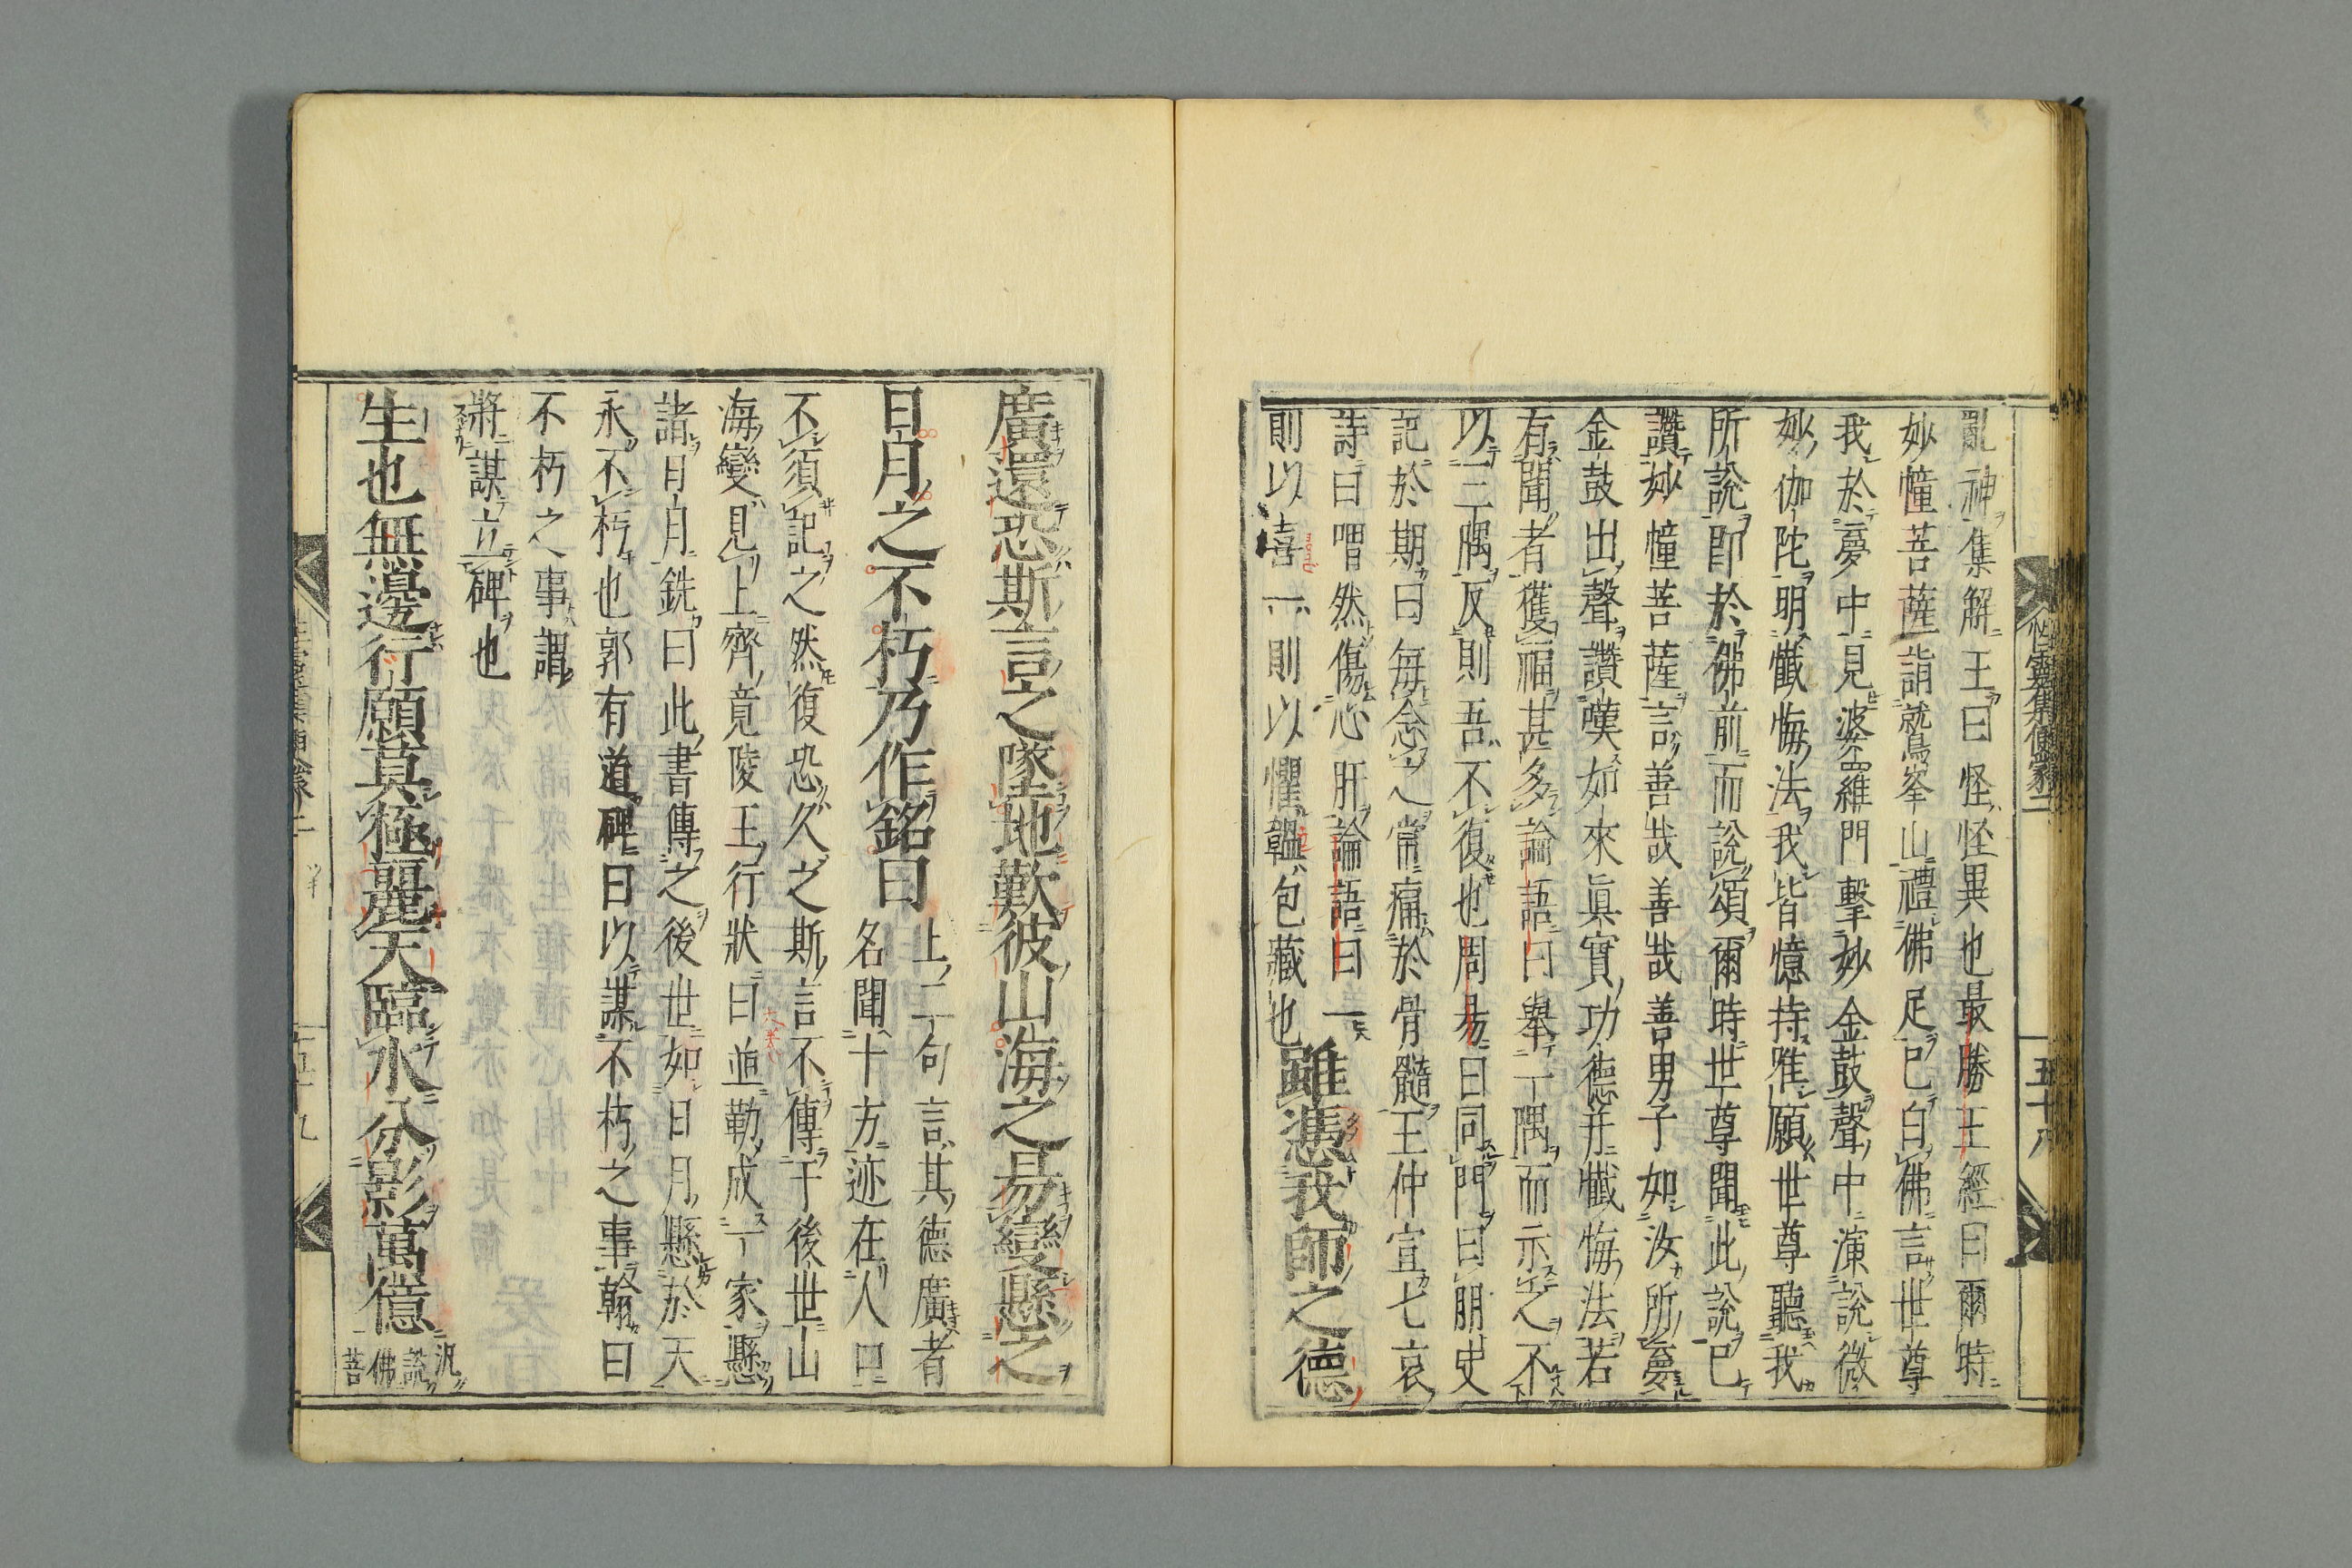 亂神集解王曰怪怪異也最勝王經曰爾時
妙幢菩薩詣鷲峯山禮佛足已白佛言世尊
我於夢中見婆羅門擊妙金鼓聲中演說微
妙伽陀明懺悔法我皆憶持唯願世尊聽我
所說即於佛前而說頌爾時世尊聞此說已
讚妙幢菩薩言善哉善哉善男子如汝所夢
金鼓出聲讚嘆如來眞實功德并懺悔法若
有聞者獲福甚多論語曰舉一隅而示之不
以三隅反則吾不復也周易曰同門曰朋史
記於期曰每念之常痛於骨髓王仲宣七哀
詩曰喟然傷心肝論語曰一
則以喜一則以懼韞包藏也雖憑我師之德
性靈集便蒙二
五十八
廣還恐斯言之墜地歎彼山海之易變懸之
日月之不朽乃作銘曰
上二句言其德廣者
名聞十方迹在人口
不須記之然復恐久之斯言不傳于後世山
海變見上齊竟陵王行狀曰道勒成一家懸
諸日月銑曰此書傳之後世如日月懸於天
永不朽也郭有道碑曰以謀不朽之事翰曰
不朽之事謂
將謀立碑也
生也無邊行願莫極麗天臨水分影萬億
汎說佛菩
五十九